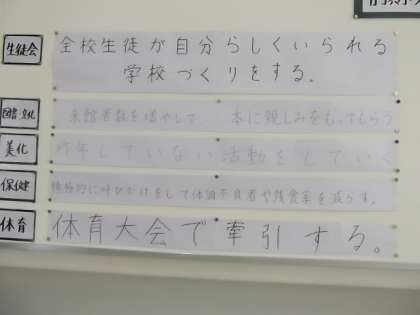 生徒会
全校生徒が自分らしくいられる
学校づくりをする.
図書・文化
来館者数を増やして 本に親しみをもってもらう
美化
昨年していない活動をしていく
保健
積極的に呼びかけをして体調不良者や残食率を減らす.
体育
体育大会で牽引する。